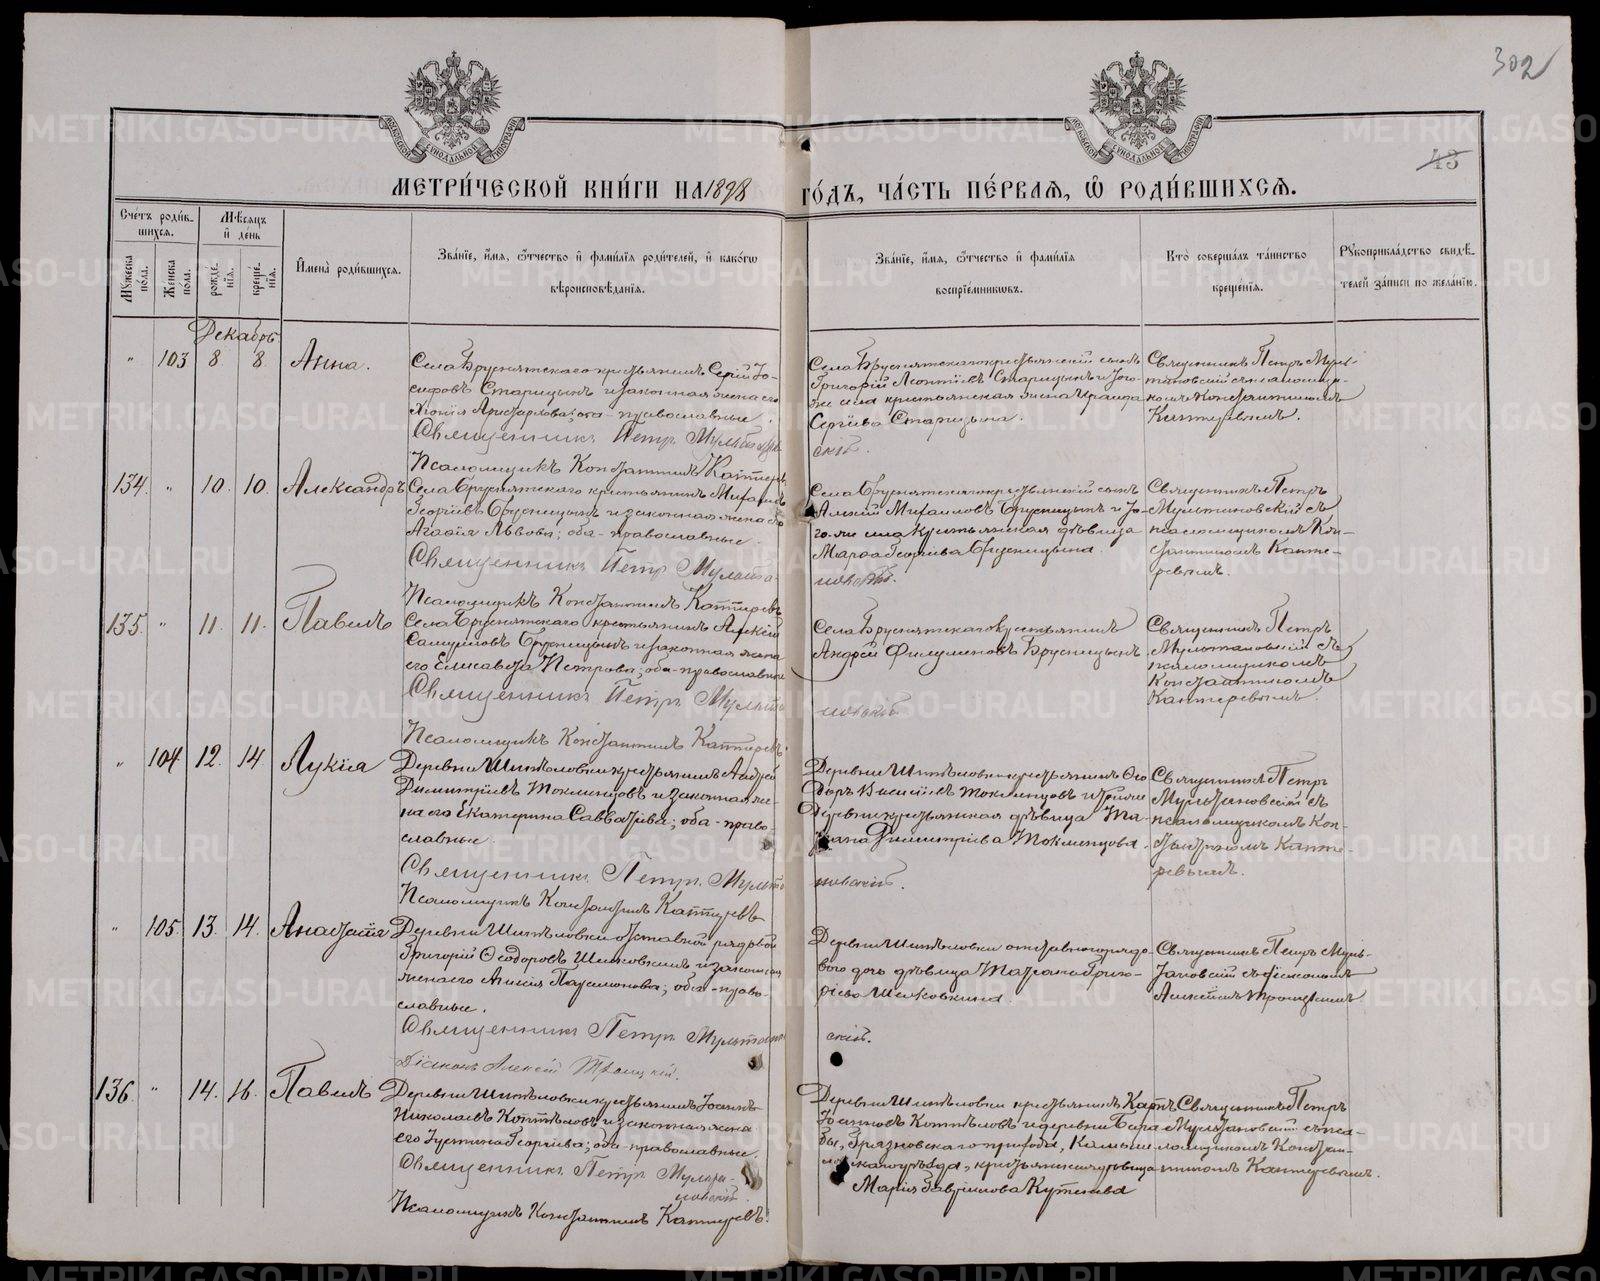 302
43
МЕТРИ́ЧЕСКОЙ КНИ́ГИ НА 1898 ГО́ДЪ, ЧА́СТЬ ПЕ́РВАЯ, Ѡ РОДИ́ВШИХСЯ.
Сче́тъ роди́вшихся.
Мѣ́сяцъ и̑ де́нь
Мꙋжеска по́ла.
Же́нска по́ла.
рожде́нїя.
креще́нїя.
И̑мена̀ роди́вшихся.
Зва́нїе, и̑́мя, ѻ́тчество и̑ фами́лїя роди́телей, и̑ како́гѡ
вѣроисповѣ́данїя.
Зва́нїе, и̑́мя, ѻ́тчество и̑ фами́лїя
воспрїе́мникѡвъ.
Кто̀ соверша́лъ та́инство
креще́нїя.
Рꙋкоприкла́дство свидѣ́-
телей за́писи по жела́нїю.
Декабрь
" 103 8 8 Анна.
Села Бруснятскаго крестьянинъ Сергій Іо-
сифовъ Старицынъ и законная жена его
Хіонія Аристархова; оба православные.
Священникъ Петръ Мультановскій.
Псаломщикъ Константинъ Каптеревъ
Села Бруснятскаго крестьянскій сынъ
Григорій Леонтіевъ Старицынъ и того-
же села крестьянская жена Ираида
Сергіева Старицына.
Священникъ Петръ Муль-
тановскій съ псаломщи-
комъ Константиномъ
Каптеревымъ.
134. " 10. 10. Александръ
Села Бруснятскаго крестьянинъ Михаилъ
Георгіевъ Брусницынъ и законная жена его
Агафія Львова; оба православные.
Священникъ Петръ Мультановскій.
Псаломщикъ Константинъ Каптеревъ
Села Бруснятскаго крестьянскій сынъ
Алексій Михаиловъ Брусницынъ и то-
го-же села крестьянская дѣвица
Марфа Георгіева Брусницына.
Священникъ Петръ
Мультановскій съ
псаломщикомъ Кон-
стантиномъ Капте-
ревымъ.
135. " 11. 11. Павелъ
Села Бруснятскаго крестьянинъ Алексій
Самуиловъ Брусницынъ и законная жена
его Елисавета Петрова; оба-православные
Священникъ Петръ Мультановскій
Псаломщикъ Константинъ Каптеревъ.
Села Бруснятскаго крестьянинъ
Андрей Филимоновъ Брусницынъ
Священникъ Петръ
Мультановскій съ
псаломщикомъ
Константиномъ
Каптеревымъ
" 104 12. 14 Лукіа
Деревни Шипѣловки крестьянинъ Андрей
Димитріевъ Токменцовъ и законная же-
на его Екатерина Савватіева; оба-право-
славные.
Священникъ Петръ Мультановскій.
Псаломщикъ Константинъ Каптеревъ
Деревни Шипѣловки крестьянинъ Ѳео-
доръ Василіевъ Токменцовъ и тоя же
деревни крестьянская дѣвица Та-
тіана Димитріева Токменцова.
Священникъ Петръ
Мультановскій съ
псаломщикомъ Кон-
стантиномъ Капте-
ревымъ.
" 105. 13. 14. Анастасія
Деревни Шипѣловки отставной рядовой
Григорій Ѳеодоровъ Шелковкинъ и законная
жена его Анисія Парамонова; оба-право-
славные.
Священникъ Петръ Мультановскій.
Діаконъ Алексій Троицкій.
Деревни Шипѣловки отставного рядо-
вого дочь дѣвица Татіана Григо-
ріева Шелковкина.
Священникъ Петръ Муль-
тановскій съ діакономъ
Алексіемъ Троицкимъ
136. " 14. 16. Павелъ
Деревни Шипѣловки крестьянинъ Іоаннъ
Николаевъ Коптѣловъ и законная жена
его Іустина Георгіева; оба-православные.
Священникъ Петръ Мульта-
новскій.
Псаломщикъ Константинъ Каптеревъ.
Деревни Шипѣловки крестьянинъ Карпъ
Іоанновъ Коптѣловъ и деревни Бара-
бы, Грязновскаго прихода, Камыш-
ловскаго уѣзда, крестьянская дѣвица
Марія Гавріилова Кутенева
Священникъ Петръ
Мультановскій съ пса-
ломщикомъ Констан-
тиномъ Каптеревымъ.